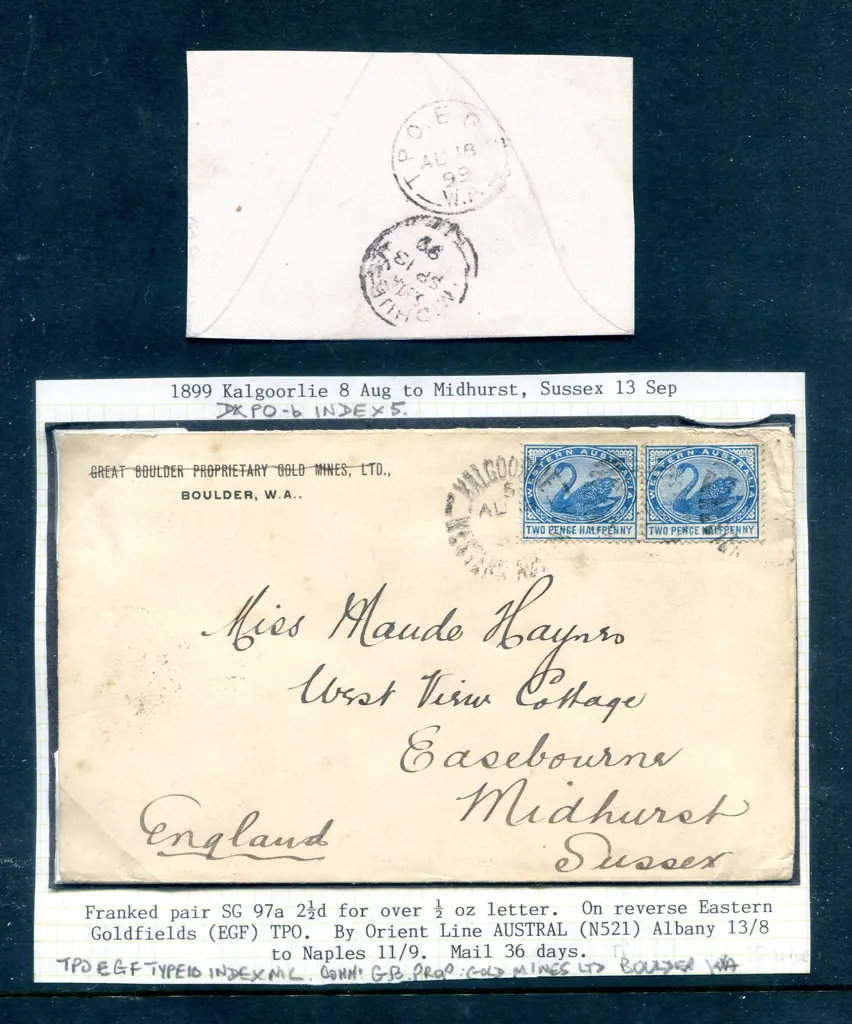 T.P.O. E.G.F
AU 18
99
W.A
MIDHURST
SP 13
99
1899 Kalgoorlie 8 Aug to Midhurst, Sussex 13 Sep
INDEX 5.
GREAT BOULDER PROPRIETARY GOLD MINES, LTD.,
BOULDER, W.A..
KALGOO
5
AU
WESTERN AUSTRALIA
TWO PENCE HALFPENNY
WESTERN AUSTRALIA
TWO PENCE HALFPENNY
Miss Maude Haynes
West View Cottage
Easebourne
Midhurst
England
Sussex
Franked pair SG 97a 2½d for over ½ oz letter. On reverse Eastern
Goldfields (EGF) TPO. By Orient Line AUSTRAL (N521) Albany 13/8
to Naples 11/9. Mail 36 days.
TPO EGF TYPE 10 INDEX NIL. COMM: G.B. PROP. GOLD MINES LTD BOULDER WA